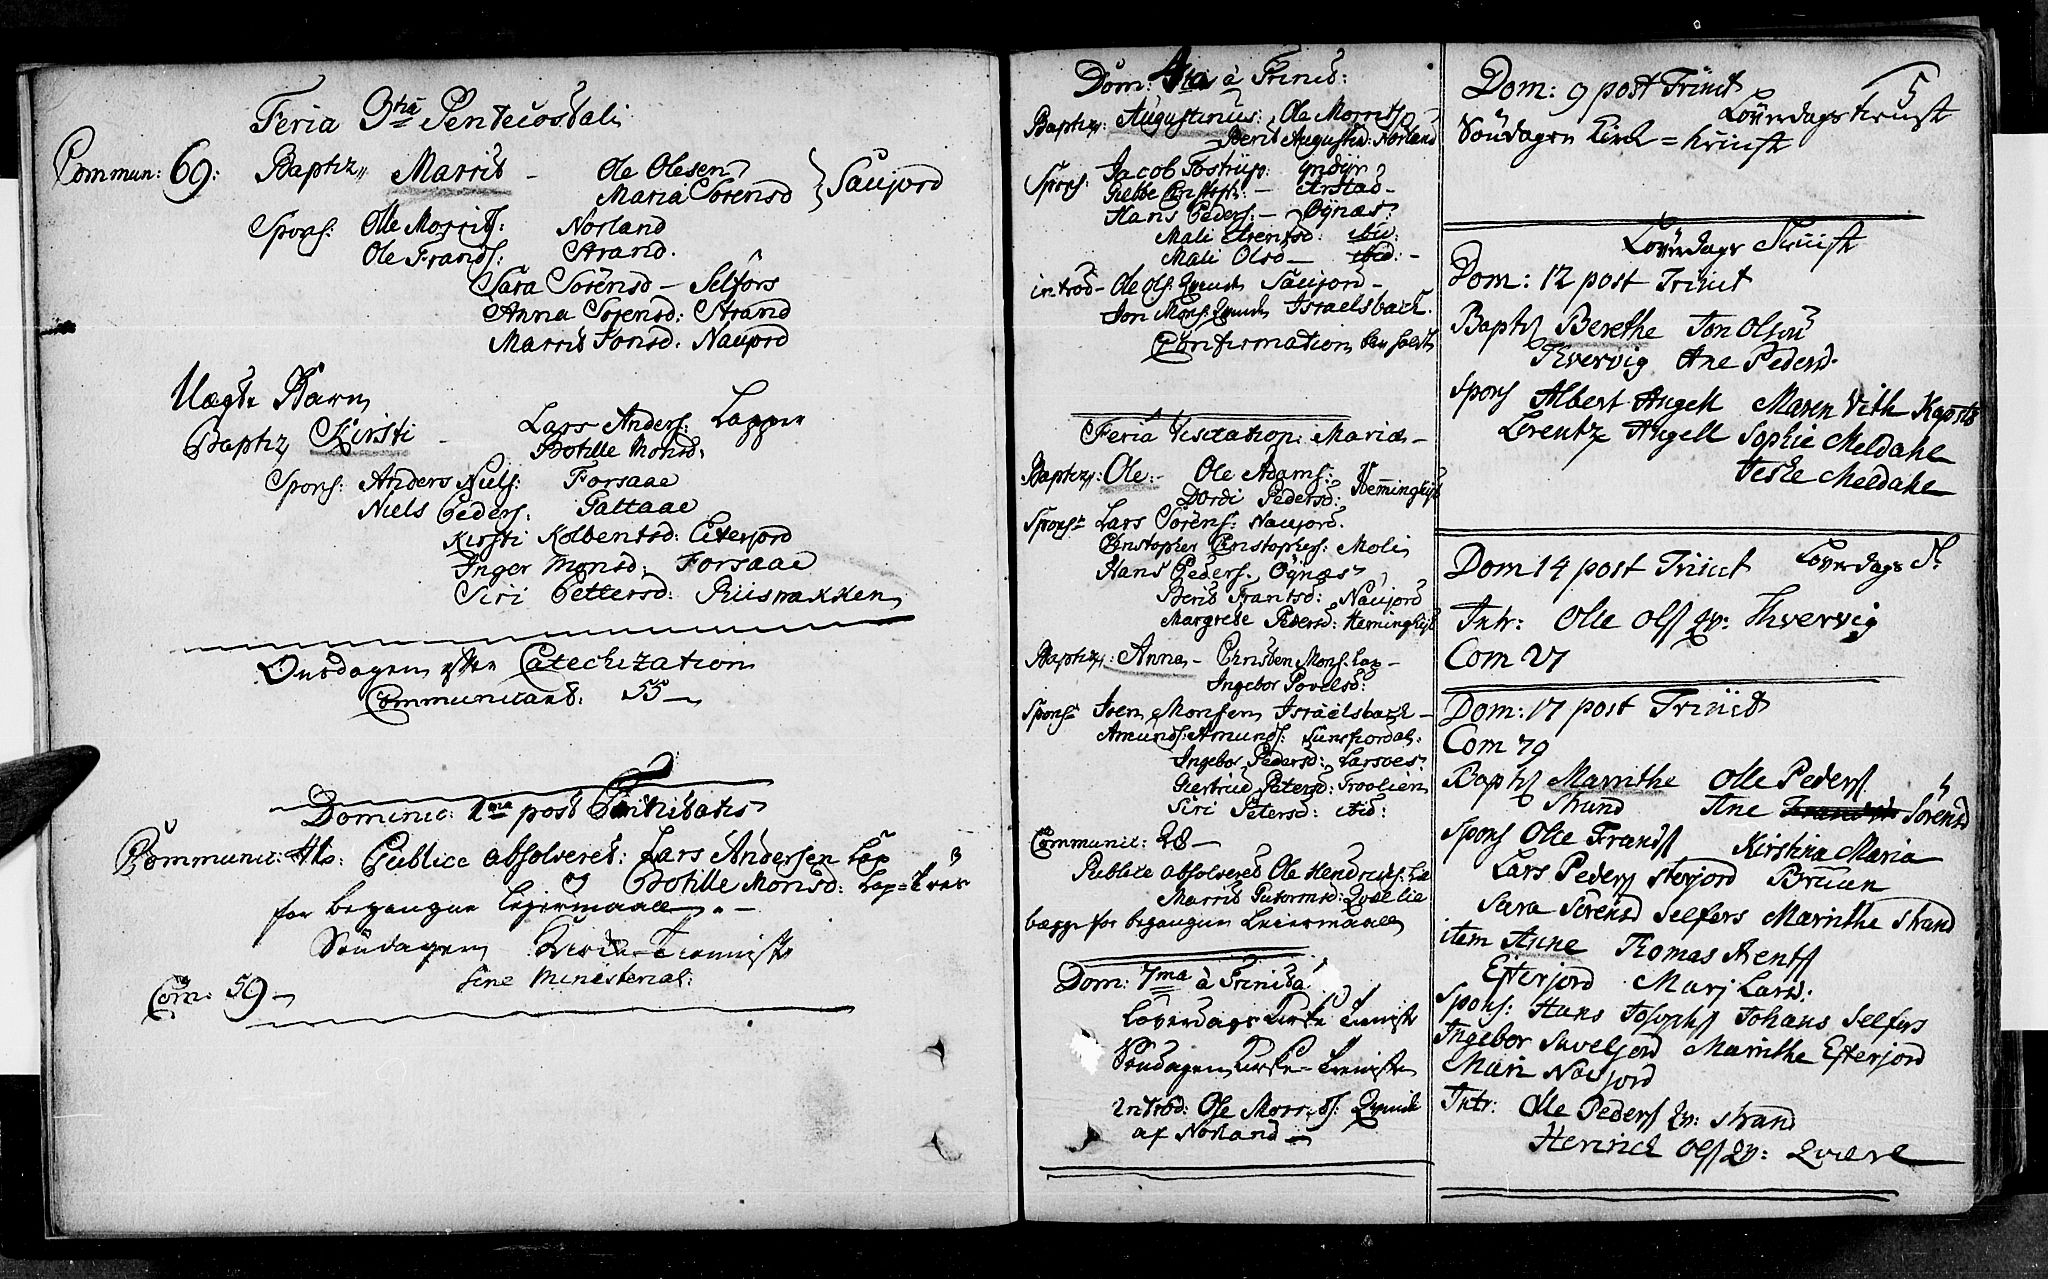 Feria 3tia Pentecostali
Commun: 69: Baptiz,, Marrit - Ole Olesen
Maria Sørensd } Saujord
Spons: Olle Morrits: Norland
Ole Frands: Strand.
Sara Sørensd - Selfors
Anna Sørensd: Strand
Marrit Jonsd: Naujord
Uægte Barn
Baptiz Kirsti - Lars Anders: Lapper
Botille Monsd:
Spons: Anders Niels: Forsaae
Niels Peders: Galtaae
Kirsti Kolbentsd: Eiterjord
Inger Monsd: Forsaae
Siri Pettersd: Riisnakken
Onsdagen efter Catechization
Communicant: 55 -
Dominic: 1ma post Trinitatis
Communic: Publice absolveret: Lars Andersen Lap
og Botille Monsd: Lap=
for begangne Lejermaall -
Søndagen
sine ministerial:
Com: 59 -
Dom: 4ta à Trinit:
Baptiz,: Augustinus: Ole Morrits
Berit Augustid: Norland
Spons: Jacob Tostrup:
Giebbe Christoph: - Arstad -
Hans Peders: - Øynæs:
Mali Arentsd: ibid:
Mali Olsd - ibid: -
introd - Ole Ols: Qvinde Saujord -
Jon Mons: Qvinde Israelsbach.
Confirmation
Feria Visitation: Mariæ -
Baptiz,: Ole: - Ole Adams:
Dordi Pedersd: Hemminghÿt
Spons: Lars Sørens: Naujord.
Christopher Christophers: Moli
Hans Peders. Øynæs
Berit Frantsd: Naujord
Margrete Pedersd: Heminghÿt
Baptiz,: Anna - Christen Mons: Lap -
Ingebor Povelsd:
Spons: Iver Monsen Israelsbach -
Amunds: Amunds: Sunsfiordal:
Ingebor Pedersd: Larsves:
Giertrud Petersd: Troolien
Siri Petersd: ibid:
Communic: 28 -
Publice absolveret Ole Hendrichs: La
Marrit Gutormsd: Qvællie
begge for begangen Leiermaall
Dom: 7ma à Trinita
Løverdags Kirke Tieniste
Søndagen Kirke - Tieniste
introd: Ole Morrits: Qvinde
af Norland -
5
Dom: 9 post Trinit
Løverdagstienist
Søndagen Kirch = tienist
Løverdags Tienist
Dom: 12 post Trinit
Baptz Berethe Jon Olsøn
Thvervig Ane Pedersd.
Spons Albert Angell Maren Vith
Lorentz Angell Sophie Meldahl
Meldahl
Dom 14 post Trinit Løverdags T.
Intr: Olle Olss Qv: Thvervig
Com 27
Dom: 17 post Trinit
Com 79
Baptz Marrithe Olle Peders
Strand Ane Sørensd
Spons Olle Frandss Kirstina Maria
Lars Peders Storjord Bruun
Sara Sørensd Selfors Marrithe Strand
item Anne Thomas Arents
Efterjord Mari Larsd:
Spons: Hans Josephs Johans Selfors
Ingebor Saveljord Marrithe Efterjord
Mari Nausjord
Intr: Olle Peders Qv: Strand
Henrich Olss Qv: Qvale